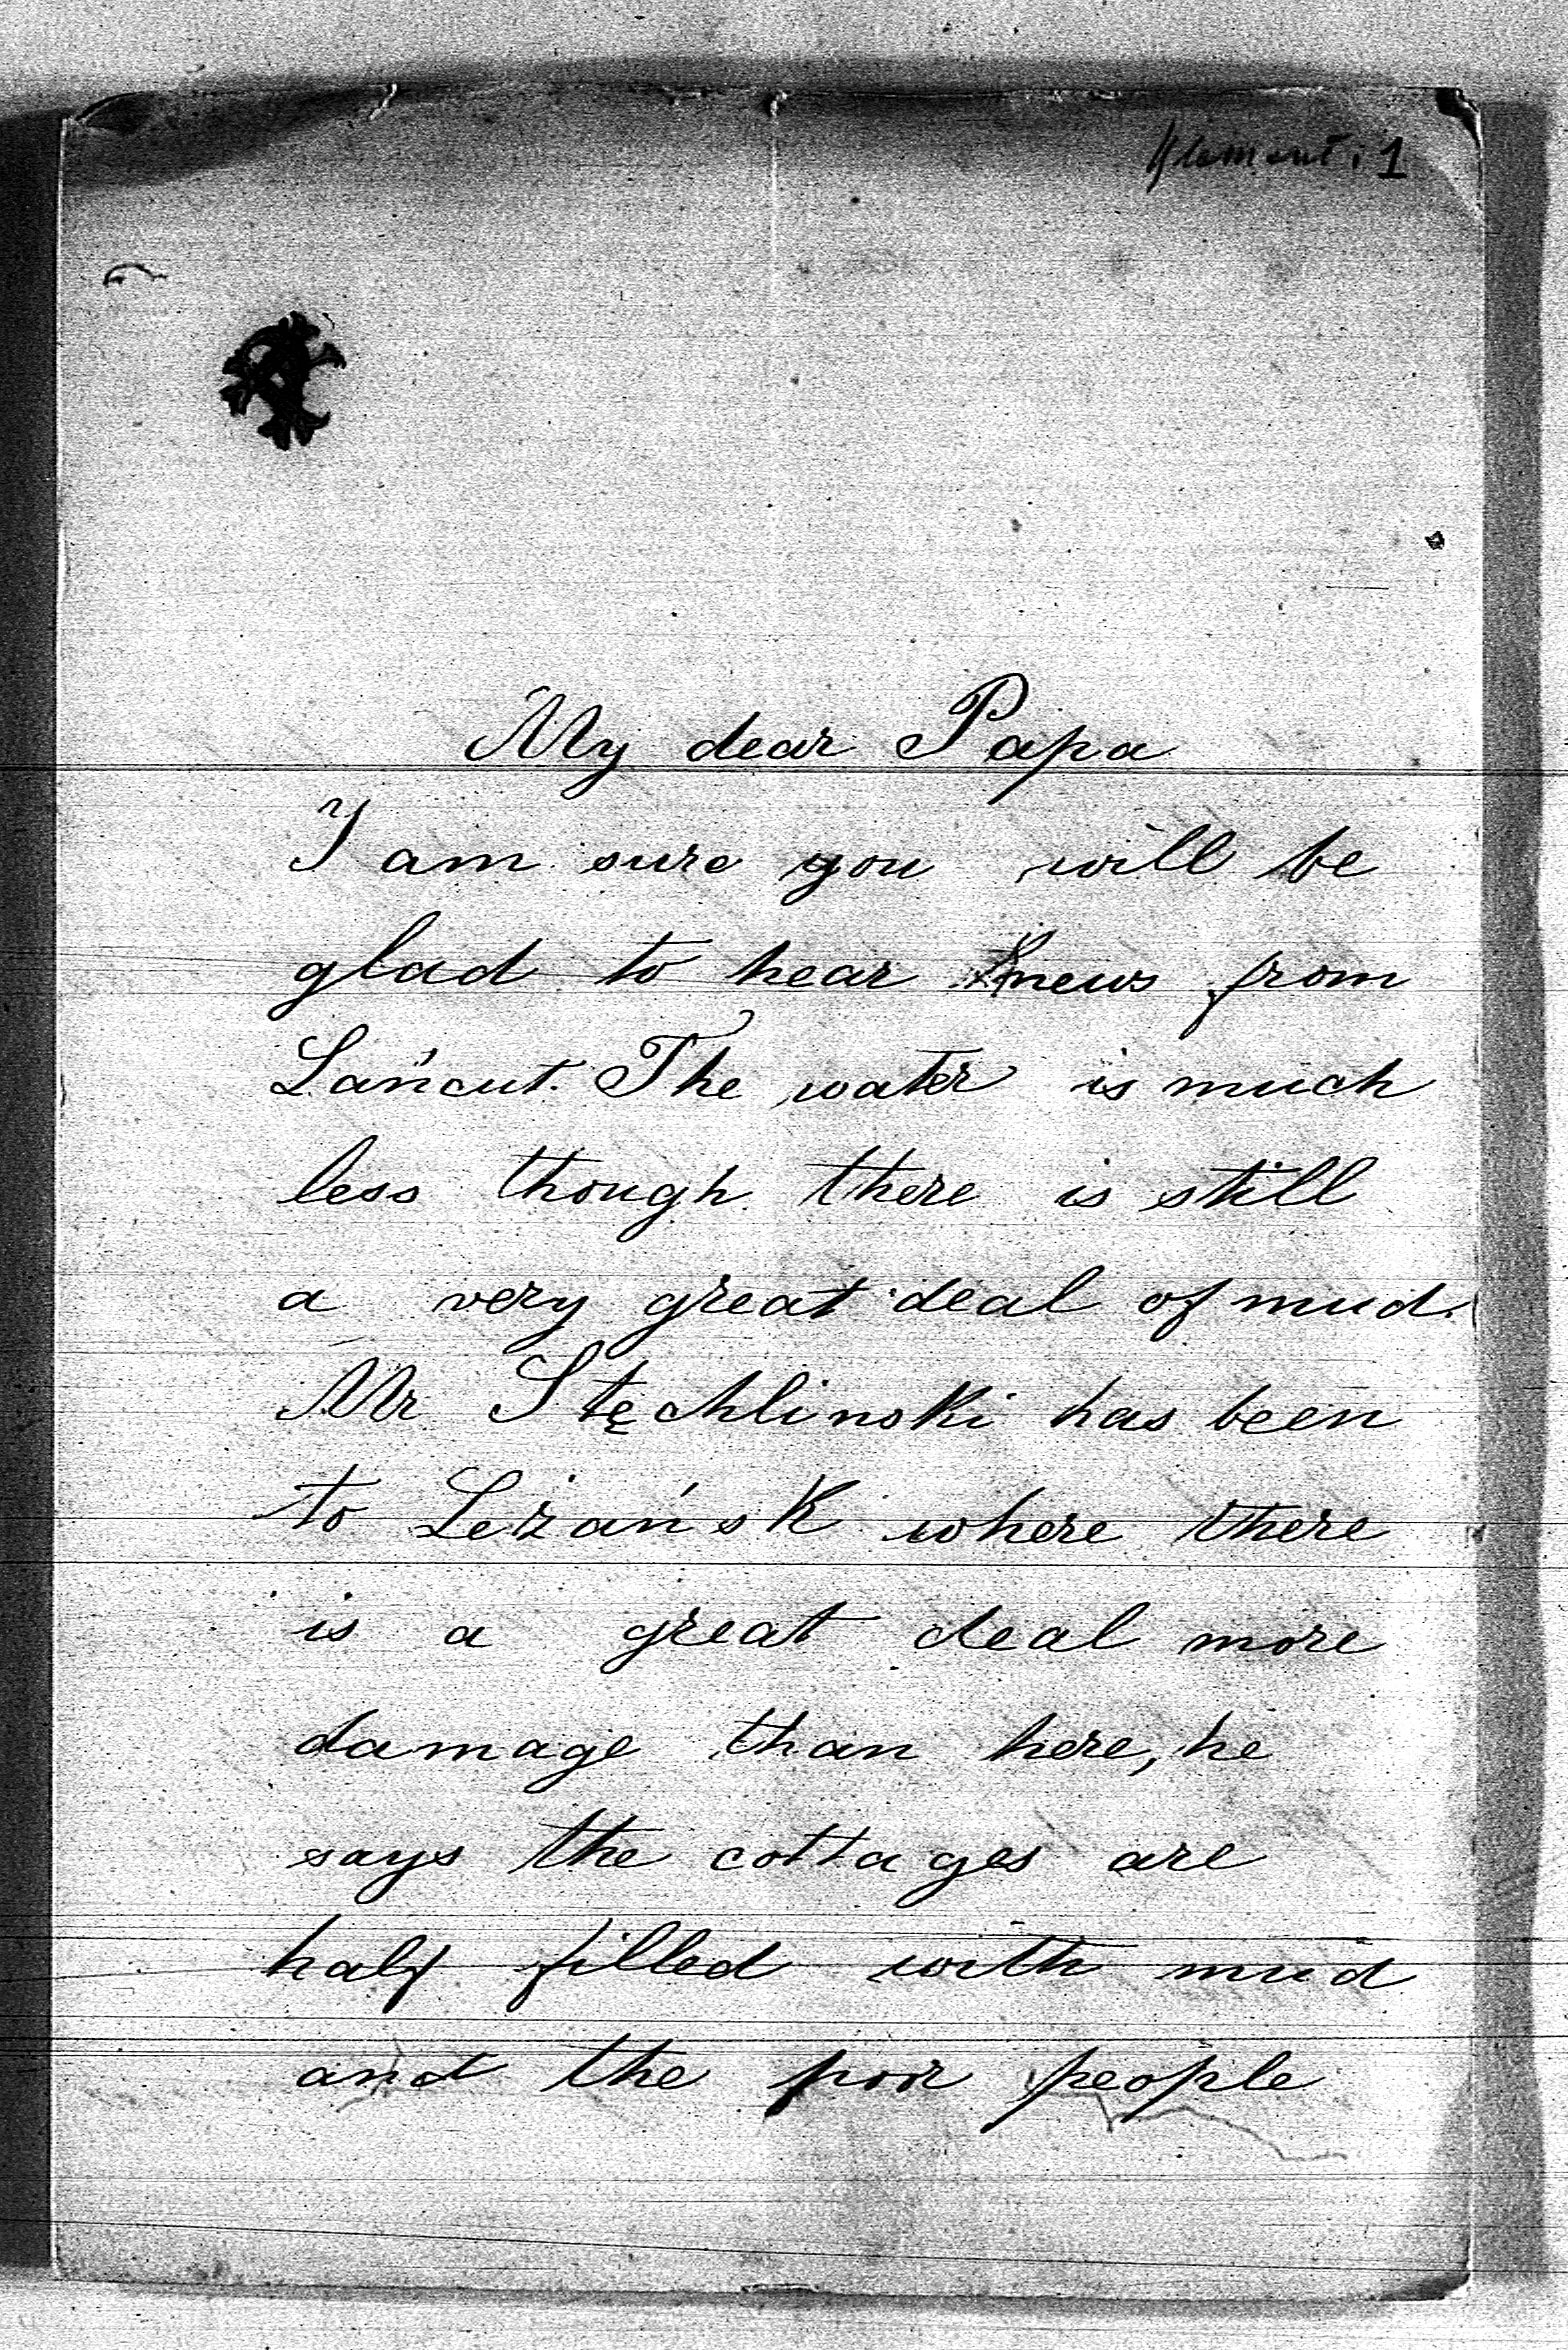 1
My dear Papa
I am sure you will be
glad to hear news from
Łańcut. The water is much
less though there is still
a very great deal of mud.
Mr Stęchlinski has been
to Leżańsk where there
is a great deal more
damage than here, he
says the cottages are
half filled with mud
and the poor people